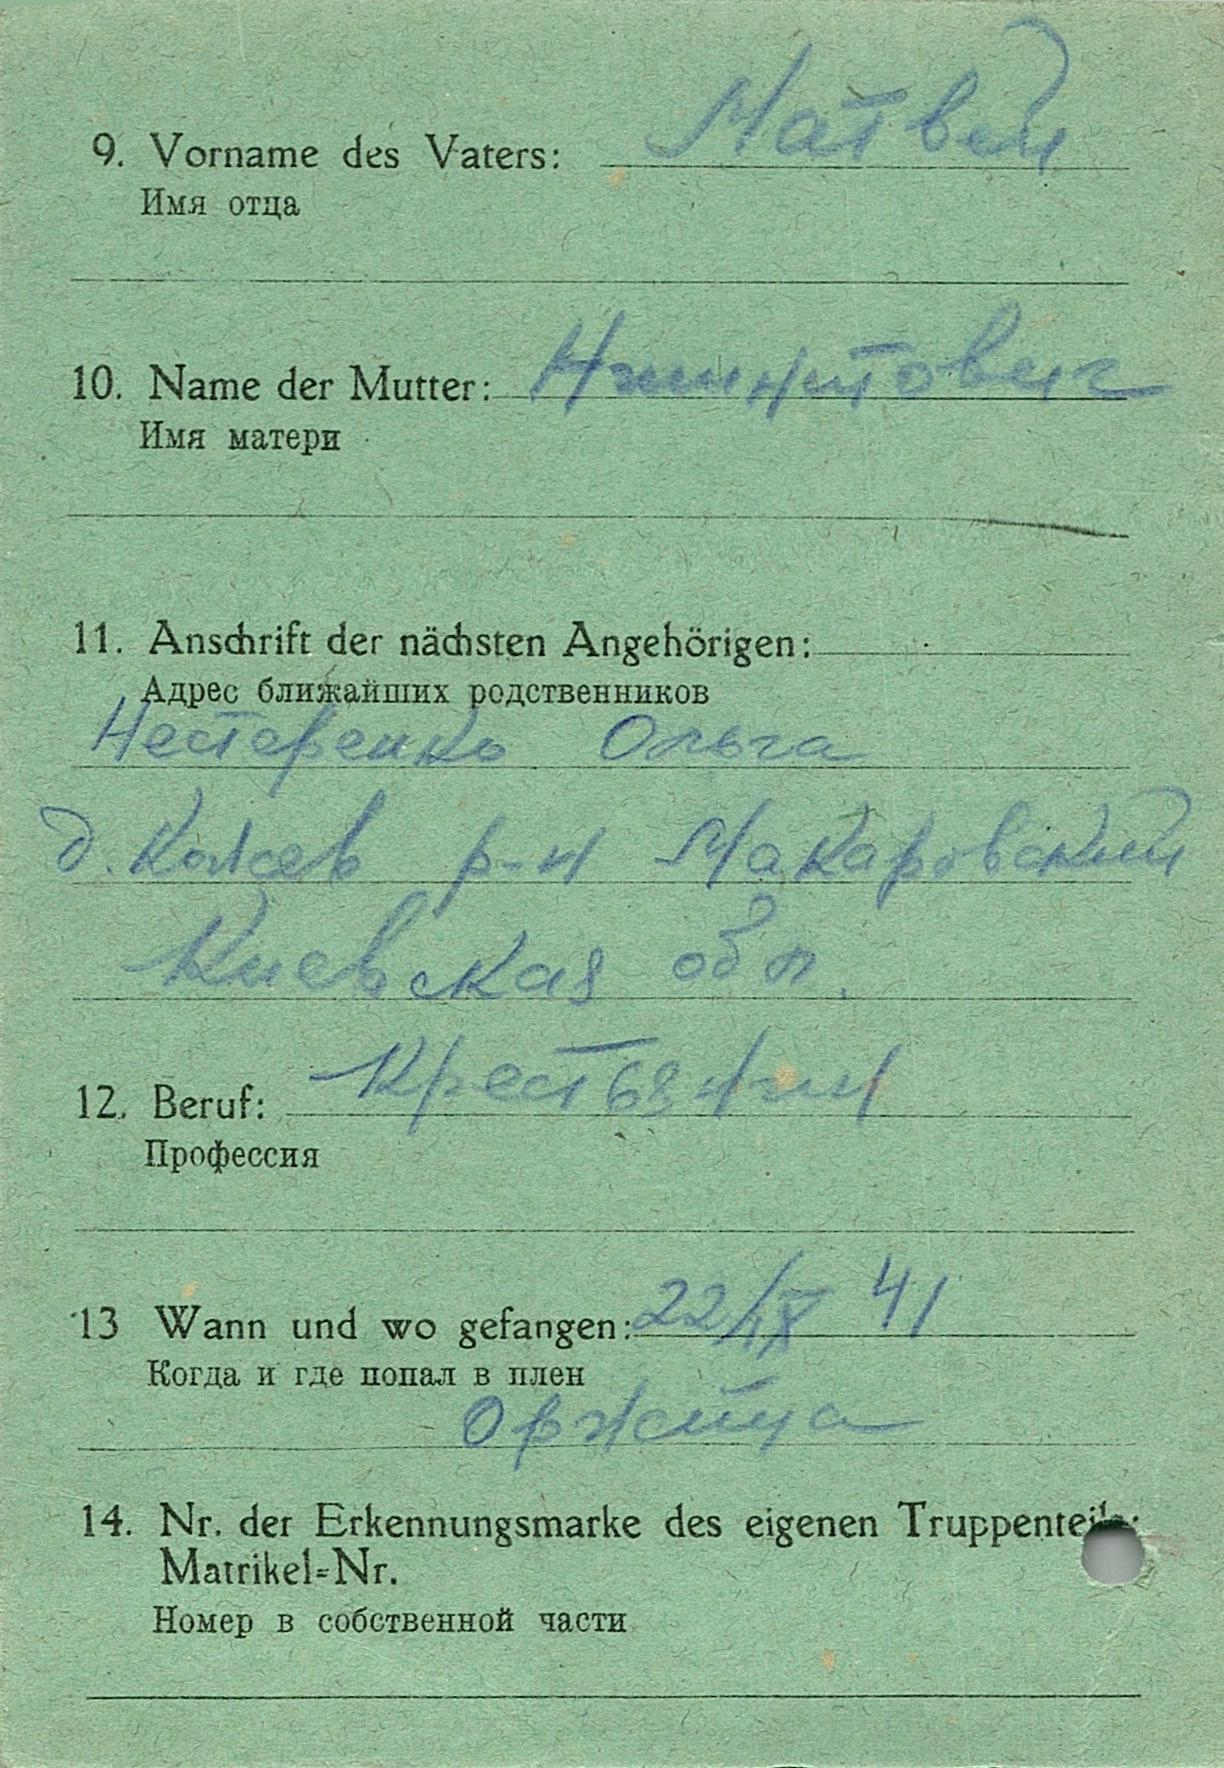 9. Vorname des Vaters: Матвей
Имя отца
10. Name der Mutter:
Имя матери
11. Anschrift der nächsten Angehörigen:
Адрес ближайших родственников
Нестеренко Ольга
д. р-н Макаровский
Киевская обл.
12. Beruf: Крестьянин
Профессия
13 Wann und wo gefangen: 22/IX 41
Когда и где попал в плен
Оржица
14. Nr. der Erkennungsmarke des eigenen Truppenteils:
Matrikel-Nr.
Номер в собственной части